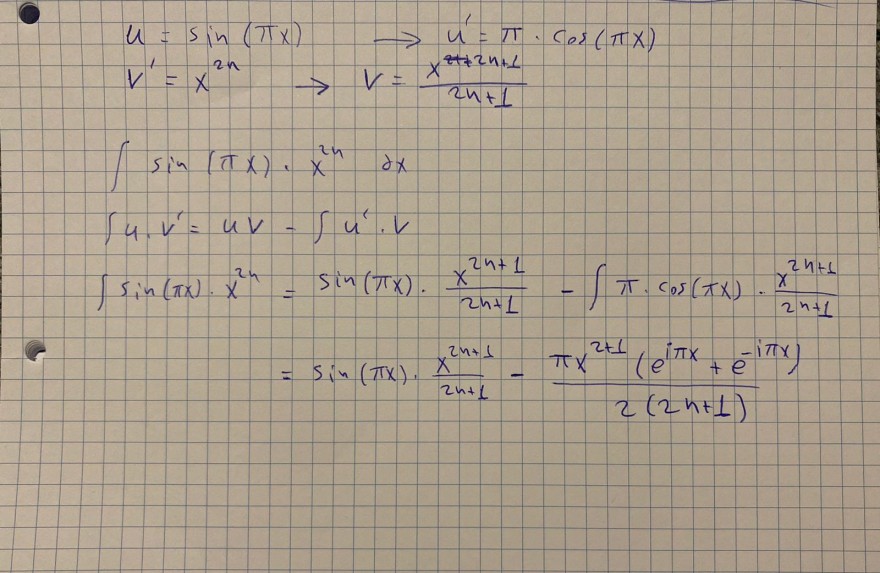 u = sin (πx) → u' = π · cos(πx)
v' = x^{2n} → v = \frac{x^{2n+1}}{2n+1}
∫ sin (πx) · x^{2n} dx
∫ u · v' = uv - ∫ u' · v
∫ sin(πx) · x^{2n} = sin(πx) · \frac{x^{2n+1}}{2n+1} - ∫ π · cos(πx) · \frac{x^{2n+1}}{2n+1}
= sin(πx) · \frac{x^{2n+1}}{2n+1} - \frac{πx^{2+1} (e^{iπx} + e^{-iπx})}{2(2n+1)}